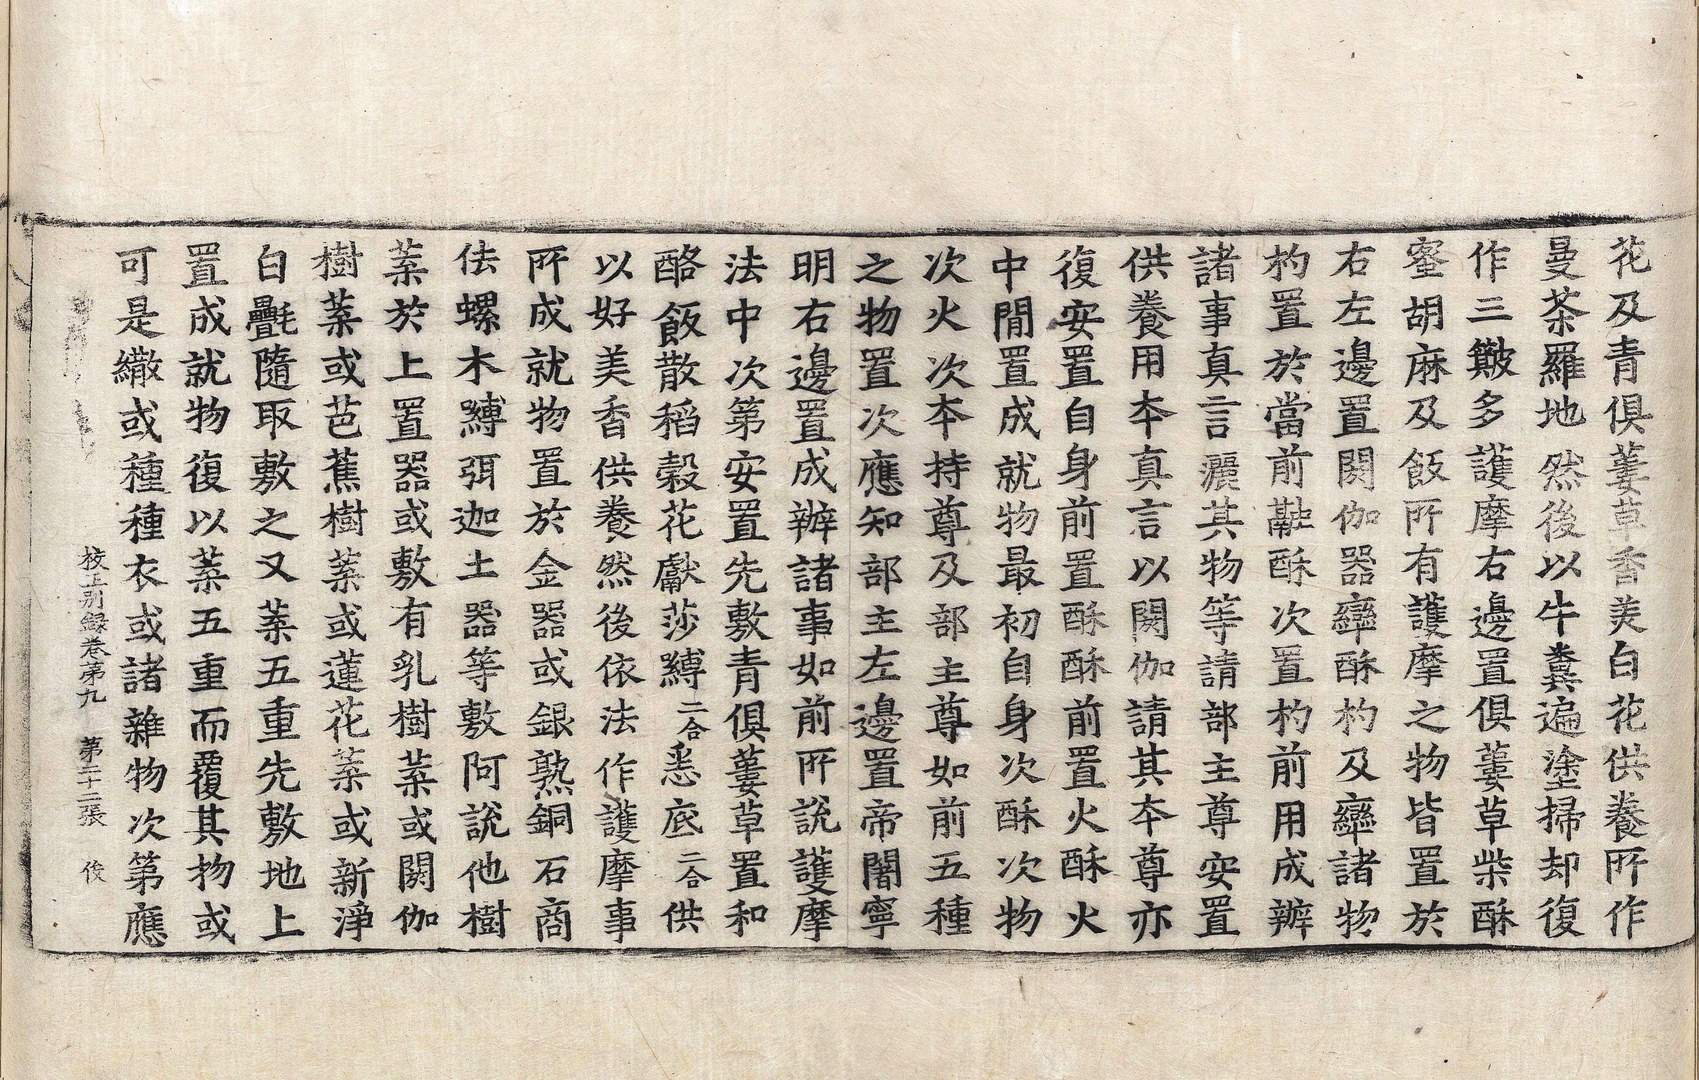 花及青俱蔞草香美白花供養所作
曼荼羅地然後以牛糞遍塗掃却復
作三簸多護摩右邊置俱蔞草柴酥
蜜胡麻及飯所有護摩之物皆置於
右左邊置閼伽器攣酥杓及攣諸物
杓置於當前融酥次置杓前用成辦
諸事真言灑其物等請部主尊安置
供養用本真言以閼伽請其本尊亦
復安置自身前置酥酥前置火酥火
中閒置成就物最初自身次酥次物
次火次本持尊及部主尊如前五種
之物置次應知部主左邊置帝闍寧
明右邊置成辦諸事如前所說護摩
法中次第安置先敷青俱蔞草置和
酪飯散稻穀花獻莎縛二合悉底二合供
以好美香供養然後依法作護摩事
所成就物置於金器或銀熟銅石商
佉螺木縛弭迦土器等敷阿說他樹
葉於上置器或敷有乳樹葉或閼伽
樹葉或芭蕉樹葉或蓮花葉或新淨
白疊毛隨取敷之又葉五重先敷地上
置成就物復以葉五重而覆其物或
可是繖或種種衣或諸雜物次第應
校正別錄卷第九 第三十二張 俊